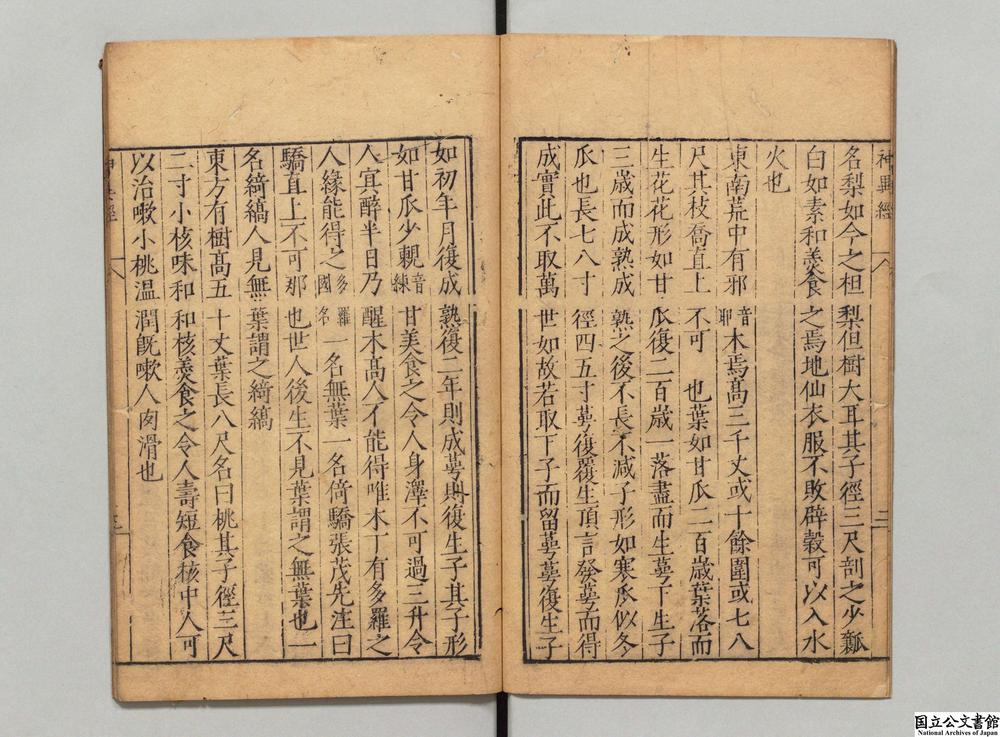 神異經 二
名梨如今之柤梨但樹大耳其子徑三尺剖之少瓤
白如素和羹食之爲地仙衣服不敗辟穀可以入水
火也
東南荒中有邪音耶木焉高三千丈或十餘圍或七八
尺其枝喬直上不可 也葉如甘瓜二百歲葉落而
生花花形如甘瓜復二百歲一落盡而生萼下生子
三歲而成熟成熟之後不長不减子形如寒瓜似冬
瓜也長七八寸徑四五寸萼復覆生頂言發萼而得
成實此不取萬世如故若取下子而留萼萼復生子
如初年月復成熟復二年則成萼則復生子其子形
如甘瓜少䚍音練甘美食之令人身澤不可過三升令
人冥醉半日乃醒木高人不能得唯木丁有多羅之
人緣能得之多羅國名一名無葉一名倚驕張茂先注曰
驕直上不可那也世人後生不見葉謂之無葉也一
名綺縞人見無葉謂之綺縞
東方有樹高五十丈葉長八尺名曰桃其子徑三尺
二寸小核味和和核羹食之令人壽短食核中人可
以治嗽小桃温潤旣嗽人肉滑也
三
国立公文書館
National Archives of Japan